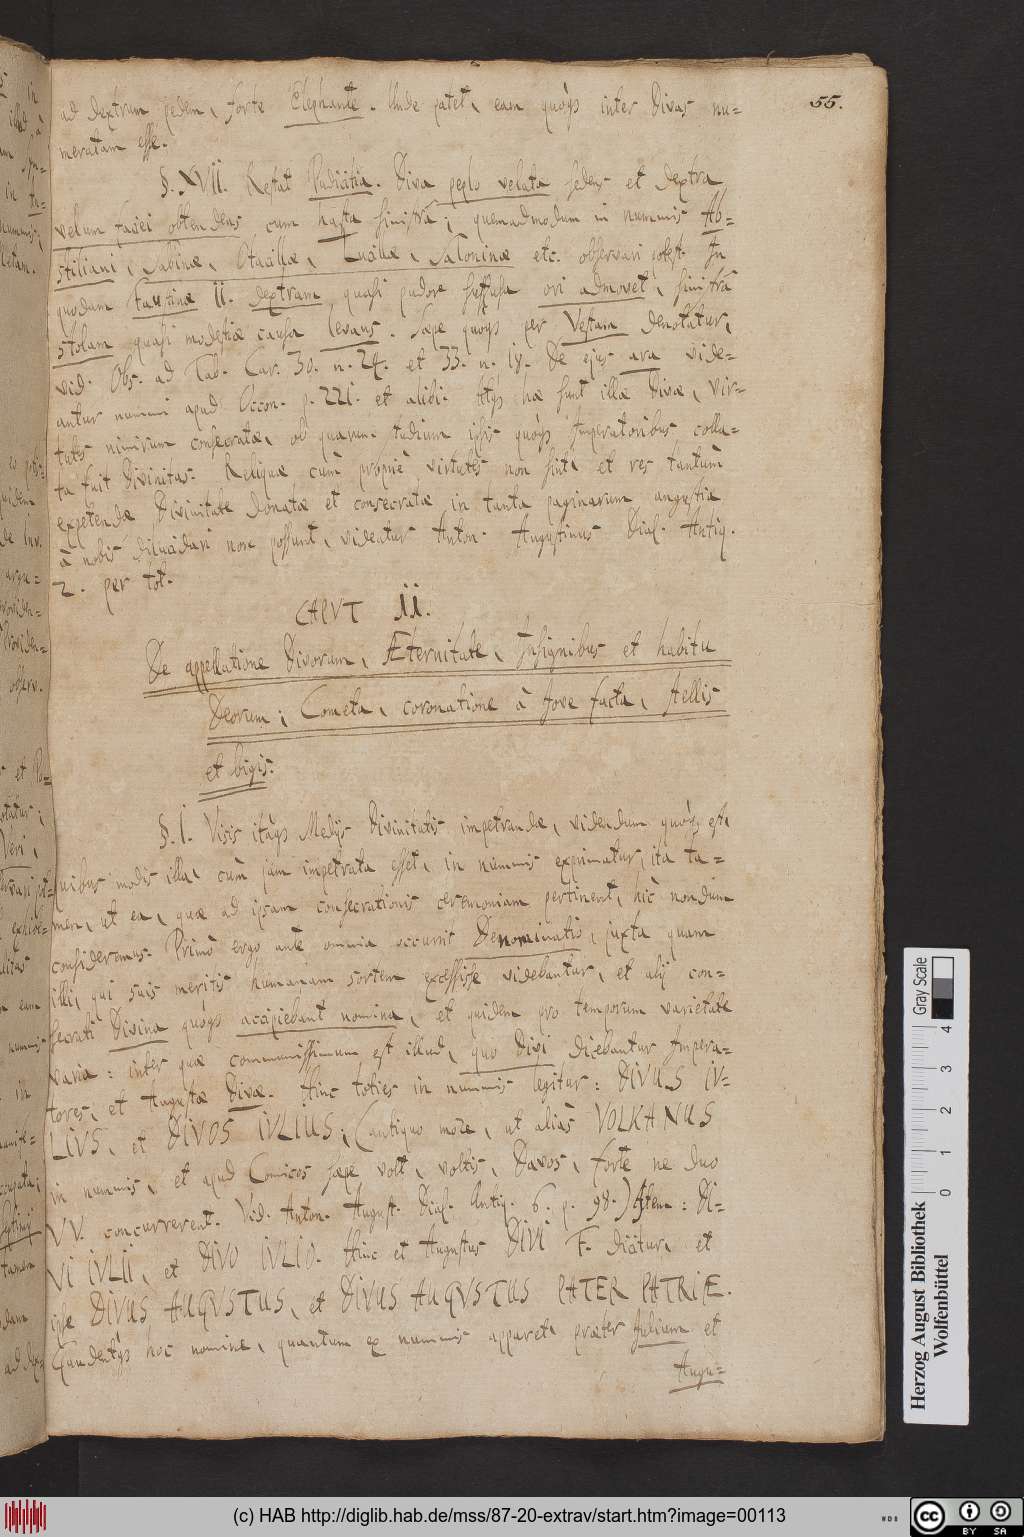 55.
ad dextrum pedem, forte Elephante. Unde patet, eam quoqs inter Divas nu=
meratam esse.
§. XVII. Restat Pudicitia. Diva peplo velata sedens et dextra
velum faciei obtendens cum hasta sinistrâ; quemadmodum in nummis Ab=
stiliani, Sabinæ, Otacillæ, Lucillæ, Saloninæ etc. observari potest. In
quodam Faustinæ II. dextram quasi pudore suffusa ori admovet, sinistrâ
stolam quasi modestiæ causa levans. Sæpe quoqs per Vestam denotatur,
vid. Obs. ad Tab. Car. 30. n. 24. et 33. n. 18. De ejus ara vide=
antur nummi apud Occon. p. 221. et alibi. Atqs hæ sunt illæ Divæ, vir=
tutes nimirum consecratæ, ob quarum studium ipsis quoqs Imperatoribus colla=
ta fuit Divinitas. Reliquæ cum propriè virtutes non sint, et res tantùm
expetendæ Divinitate donatæ et consecratæ in tanta paginarum angustia
à nobis dilucidari non possunt, videatur Anton. Augustinus Dial. Antiq.
2. per tot.
CAPUT II.
De appellatione Divorum, Æternitate, Insignibus et habitu
Deorum; Cometa, coronatione à Jove facta, stellis
et bigis.
§. I. Visis itaqs Medijs Divinitatis impetrandæ, videndum quoqs est,
quibus modis illa, cùm jam impetrata esset, in nummis exprimatur, ita ta=
men, ut ea, quæ ad ipsam consecrationis ceremoniam pertinent, hîc nondum
consideremus. Primò ergo ante omnia occurrit Denominatio, juxta quam
illi, qui suis meritis humanam sortem excessisse videbantur, et alij con=
secrati Divina quoqs accipiebant nomina, et quidem pro temporum varietate
varia: inter quæ communissimum est illud, quo Divi dicebantur Impera=
tores, et Augustæ Divæ. Hinc toties in nummis legitur: DIVUS IV=
LIVS, et DIVOS IVLIUS; (antiquo more, ut aliàs VOLKANUS
in nummis, et apud Comicos sæpe volt, voltis, Davos, forte ne duo
VV. concurrerent. Vid. Anton. August. Dial. Antiq. 6. p. 98.) Item: DI=
VI IVLII, et DIVO IVLIO. Hinc et Augustus DIVI F. dicitur, et
ipse DIVUS AUGVSTUS, et DIVUS AUGVSTUS PATER PATRIÆ.
Gaudentqs hoc nomine, quantum ex nummis apparet, præter Julium et
Augu=
Gray Scale
0 1 2 3 4
Herzog August Bibliothek
Wolfenbüttel
(c) HAB http://diglib.hab.de/mss/87-20-extrav/start.htm?image=00113
cc BY SA